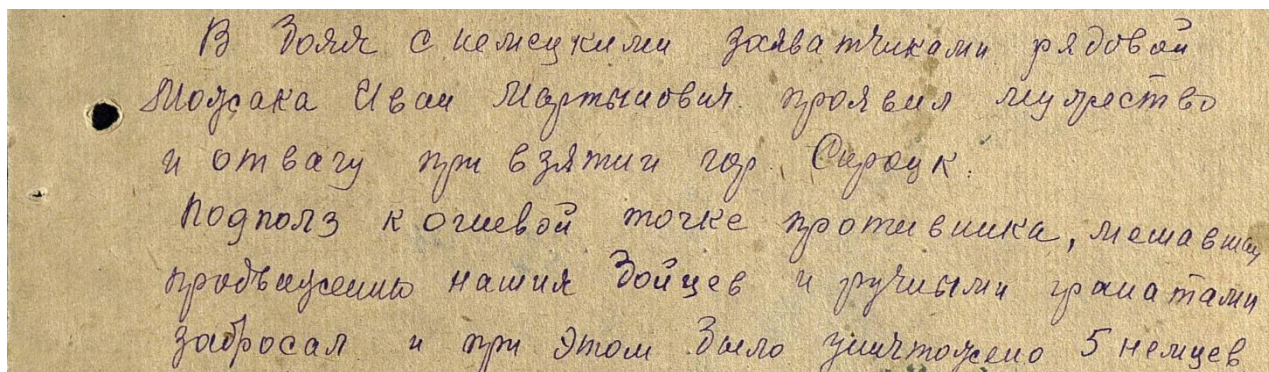 В боях с немецкими захватчиками рядовой
Можсака Иван Мартынович проявил мужество
и отвагу при взятии гор. Сироцк.
Подполз к огневой точке противника, мешавшей
продвижению наших бойцев и ручными гранатами
забросал и при этом было уничтожено 5 немцев